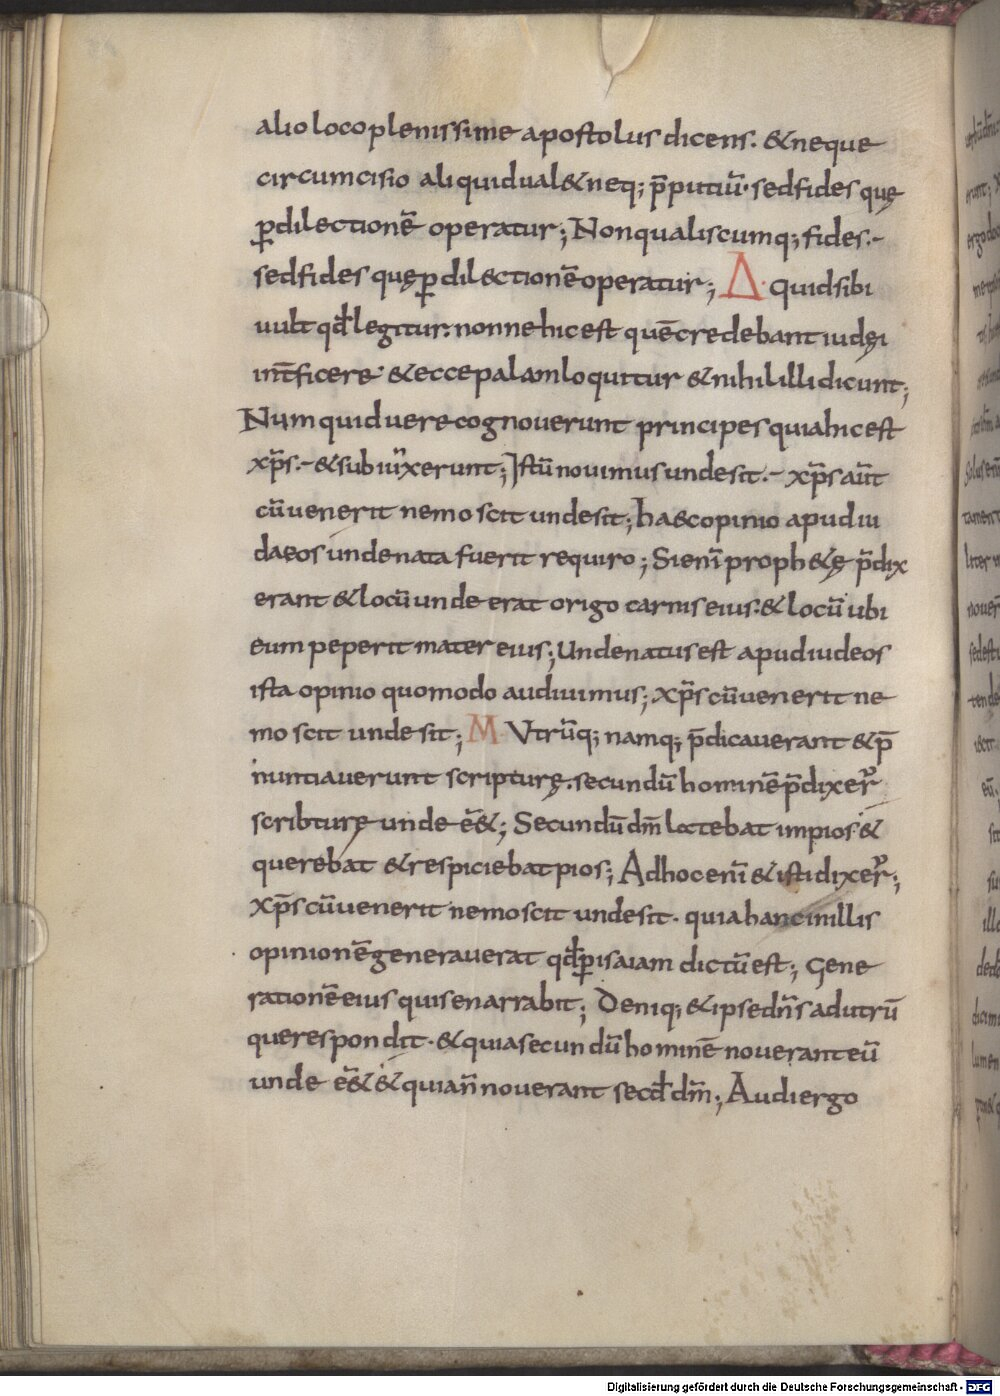 alio loco plenissime apostolus dicens. & neque
circumcisio aliquid ual& neq; p̄putiū. sed fides quę
ꝑ dilectionē operatur; Non qualiscumq; fides.
sed fides quę ꝑ dilectionē operatur; Δ. quid sibi
uult qđ legitur. nonne hic est quē credebant iudęi
int̄ficere. & ecce palam loquitur & nihil illi dicunt;
Numquid uere cognouerunt principes quia hic est
xp̄s. & subiunxerunt; Istū nouimus unde sit. xp̄s aūt
cū uenerit nemo scit unde sit; haec opinio apud iu
daeos unde nata fuerit requiro; Si enī proph&ę p̄dix
erant & locū unde erat origo carnis eius. & locū ubi
eum peperit mater eius; Unde natus est apud iudeos
ista opinio quomodo audiuimus; xp̄s cū uenerit ne
mo scit unde sit; M Vtrūq; namq; p̄dicauerant & p̄
nuntiauerunt scripturę. secundū hominē p̄dixer̄
scribturę unde ēē&; Secundū dm̄ latebat impios &
querebat & respiciebat pios; Ad hoc enī & isti dixer̄;
xp̄s cū uenerit nemo scit unde sit. quia hanc in illis
opinionē generauerat qđ ꝑ isaiam dictū est; Gene
rationē eius quis enarrabit; Deniq; & ipse dn̄s ad utrū
que respondit. & quia secundū hominē nouerant eū
unde ēē& & quia n̄ nouerant secđ dm̄; Audi ergo
Digitalisierung gefördert durch die Deutsche Forschungsgemeinschaft - DFG